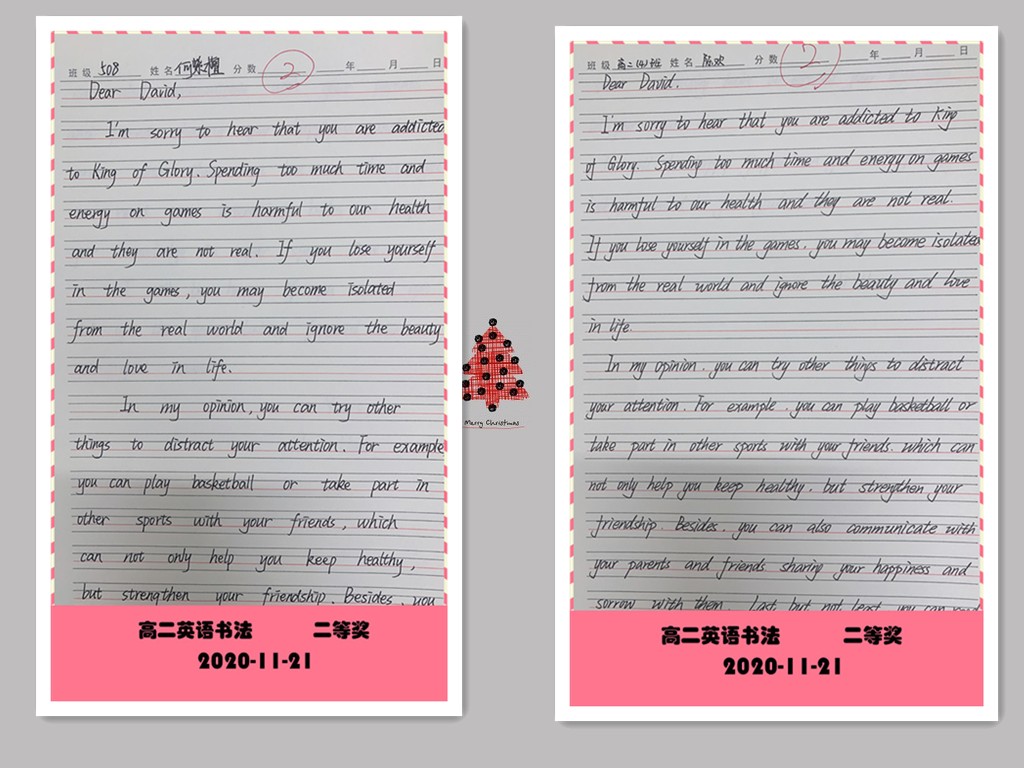 班级 508 姓名 何 分数 2 年 月 日
Dear David,
I'm sorry to hear that you are addicted
to King of Glory. Spending too much time and
energy on games is harmful to our health
and they are not real. If you lose yourself
in the games, you may become isolated
from the real world and ignore the beauty
and love in life.
In my opinion, you can try other
things to distract your attention. For example
you can play basketball or take part in
other sports with your friends, which
can not only help you keep healthy,
but strengthen your friendship. Besides, you
高二英语书法 二等奖
2020-11-21
Merry Christmas
班级 高二(4)班 姓名 分数 2 年 月 日
Dear David.
I'm sorry to hear that you are addicted to King
of Glory. Spending too much time and energy on games
is harmful to our health and they are not real.
If you lose yourself in the games, you may become isolated
from the real world and ignore the beauty and love
in life.
In my opinion, you can try other things to distract
your attention. For example, you can play basketball or
take part in other sports with your friends, which can
not only help you keep healthy, but strengthen your
friendship. Besides, you can also communicate with
your parents and friends sharing your happiness and
sorrow with them. Last but not least, you can read
高二英语书法 二等奖
2020-11-21